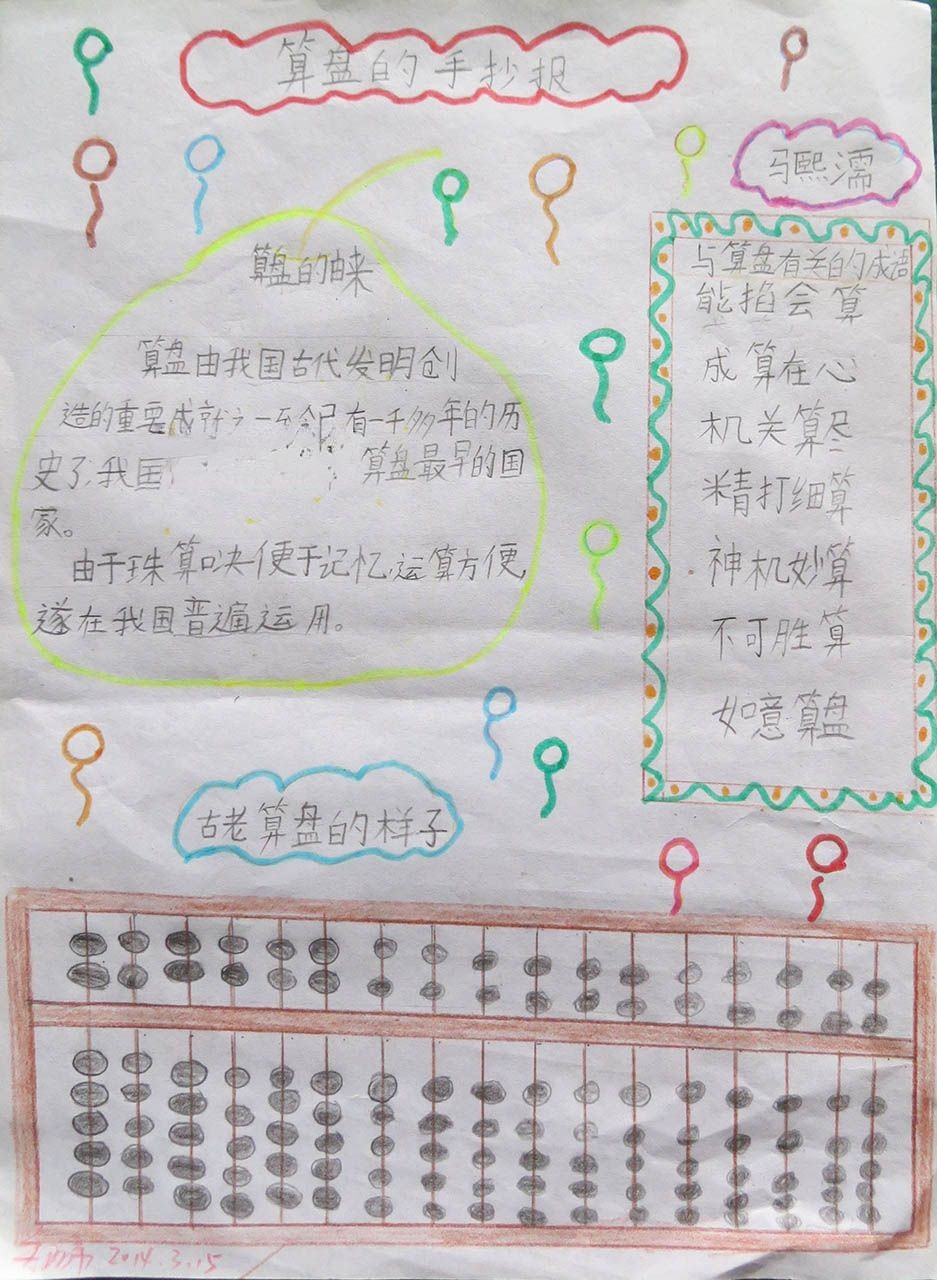 算盘的手抄报
熙濡
算盘的由来
算盘由我国古代发明创
造的重要成就之一至今已有一千多年的历
史了,我国 算盘最早的国
家。
由于珠算口决便于记忆,运算方便,
遂在我国普遍运用。
与算盘有关的成语
能掐会算
成算在心
机关算尽
精打细算
神机妙算
不可胜算
如意算盘
古老算盘的样子
2014.3.15